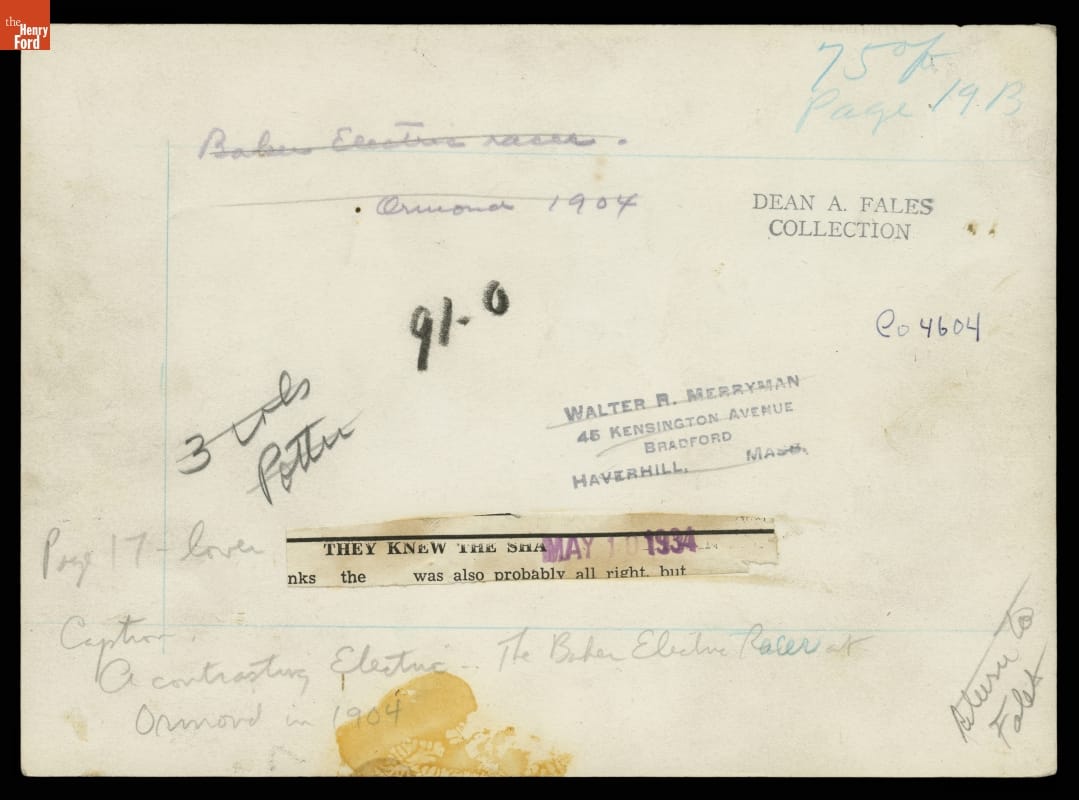 the
Henry
Ford
75%
Page 19 B
Baker Electric racer.
Ormond 1904
DEAN A. FALES
COLLECTION
91-0
Co 4604
3 cols
Potter
WALTER R. MERRYMAN
45 KENSINGTON AVENUE
BRADFORD
HAVERHILL, MASS.
Page 17 - lower
THEY KNEW THE SHA
MAY 10 1934
nks the was also probably all right, but
Caption.
A contrasting Electric -- The Baker Electric Racer at
Ormond in 1904
Return to
Fales